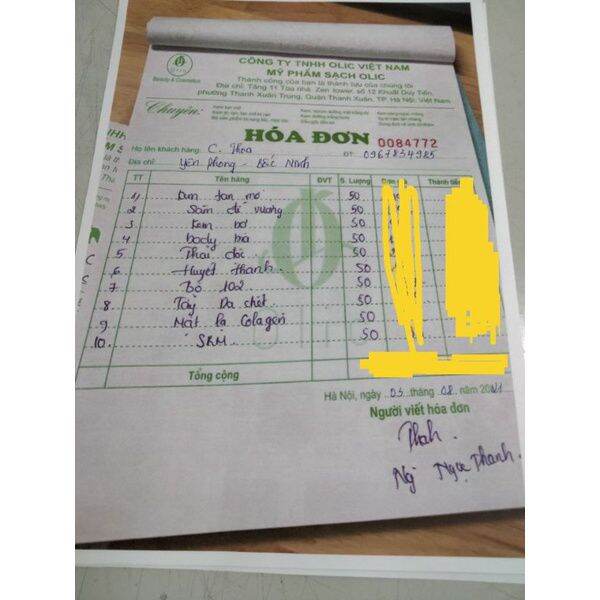 CÔNG TY TNHH OLIC VIỆT NAM
MỸ PHẨM SẠCH OLIC
Thành công của bạn là thành tựu của chúng tôi
Địa chỉ: Tầng 11 Tòa nhà Zen tower, số 12 Khuất Duy Tiến,
phường Thanh Xuân Trung, Quận Thanh Xuân, TP. Hà Nội, Việt Nam
Beauty & Cosmetics
Chuyên:
HÓA ĐƠN 0084772
Họ tên khách hàng: C. Thoa
ĐT: 0967834985
Địa chỉ: Yên Phong - Bắc Ninh
TT Tên hàng ĐVT S. Lượng Thành
1 Kem tan mỡ 50
2 Sâm đế vương 50
3 Kem bơ 50
4 body bà 50
5 Thải độc 50
6 Huyết thanh 50
7 Bộ 102 50
8 Tẩy Da chết 50
9 Mặt lạ Colagen 50
10. SRM 50
Tổng cộng
Hà Nội, ngày 05 tháng 08 năm 2021
Người viết hóa đơn
Thah.
Ng Ngọc Thanh.